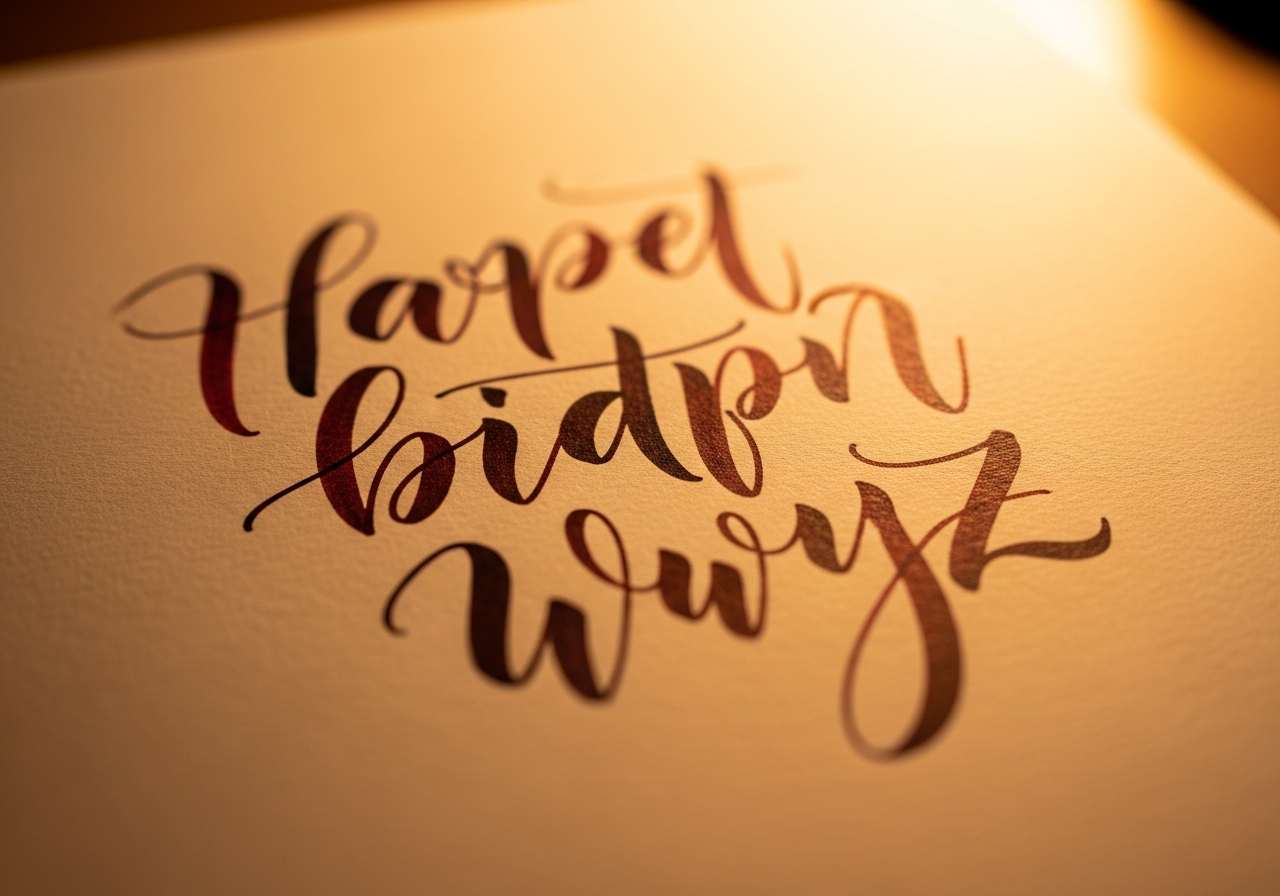 Harpet
bidpn
Wwyz